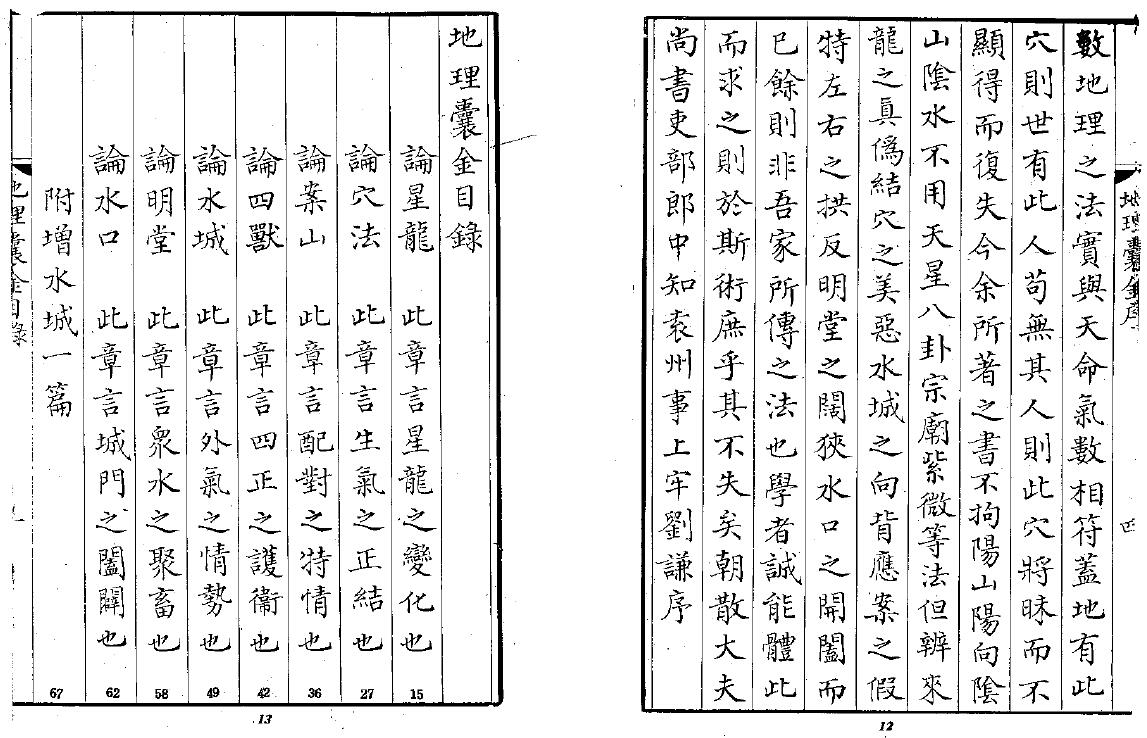 地理囊金序
四
數地理之法實與天命氣數相符蓋地有此
穴則世有此人苟無其人則此穴將昧而不
顯得而復失今余所著之書不拘陽山陽向陰
山陰水不用天星八卦宗廟紫微等法但辨來
龍之真僞結穴之美惡水城之向背應案之假
特左右之拱反明堂之闊狹水口之開闔而
已餘則非吾家所傳之法也學者誠能體此
而求之則於斯術庶乎其不失矣朝散大夫
尚書吏部郎中知袁州事上牢劉謙序
12
地理囊金目錄
論星龍 此章言星龍之變化也 15
論穴法 此章言生氣之正結也 27
論案山 此章言配對之特情也 36
論四獸 此章言四正之護衞也 42
論水城 此章言外氣之情勢也 49
論明堂 此章言眾水之聚畜也 58
論水口 此章言城門之闔闢也 62
附增水城一篇 67
地理囊金目錄
13